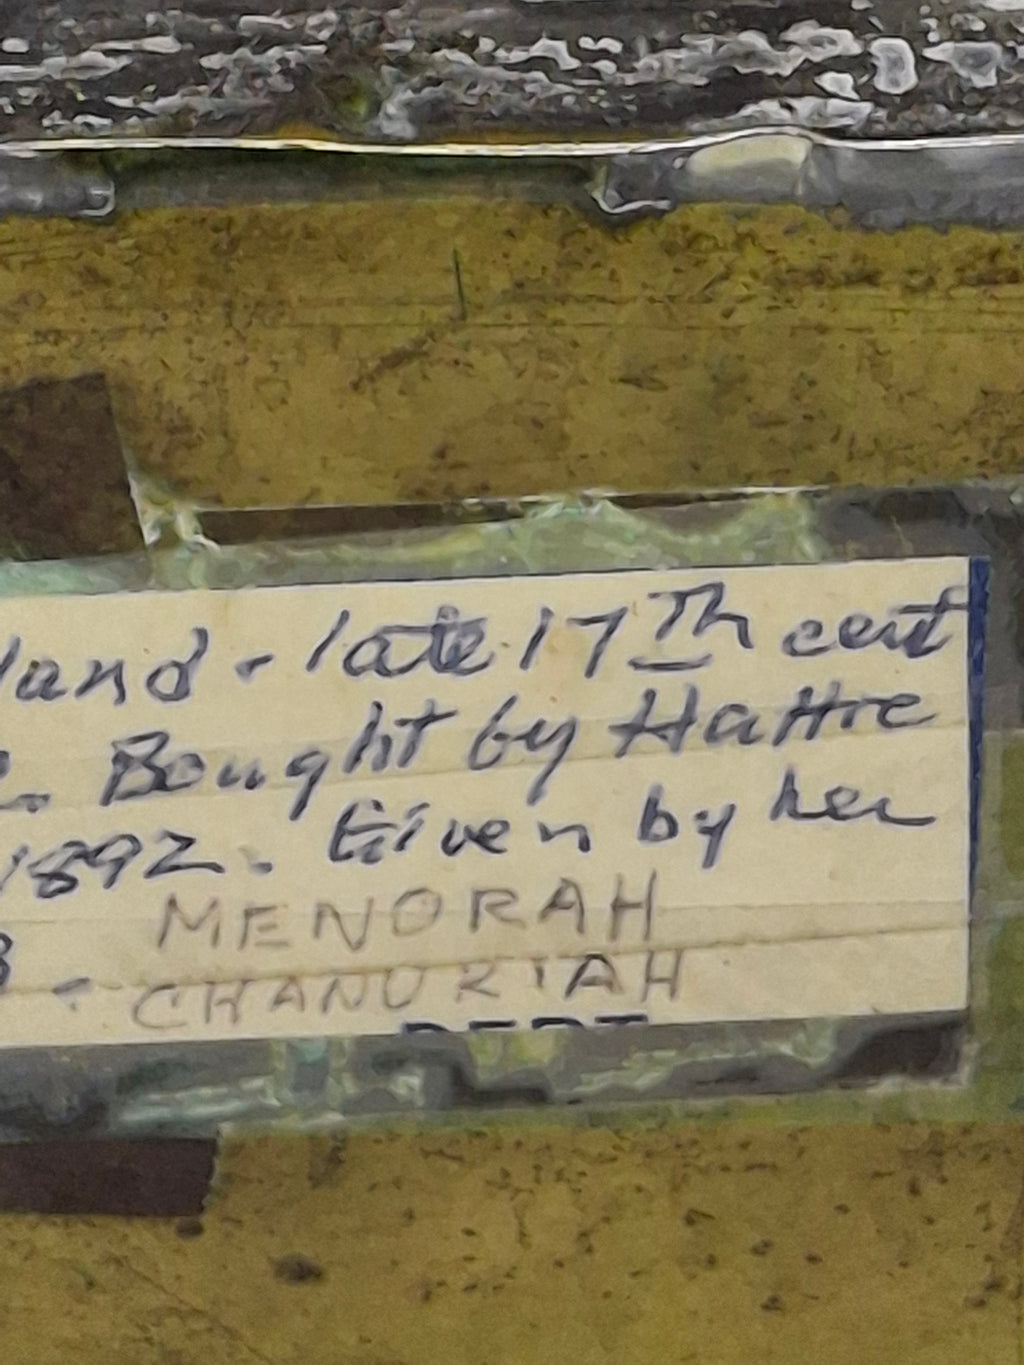 land - late 17Th cent
. Bought by Hattie
1892. Given by her
MENORAH
8 - CHANUKIAH
DEPT